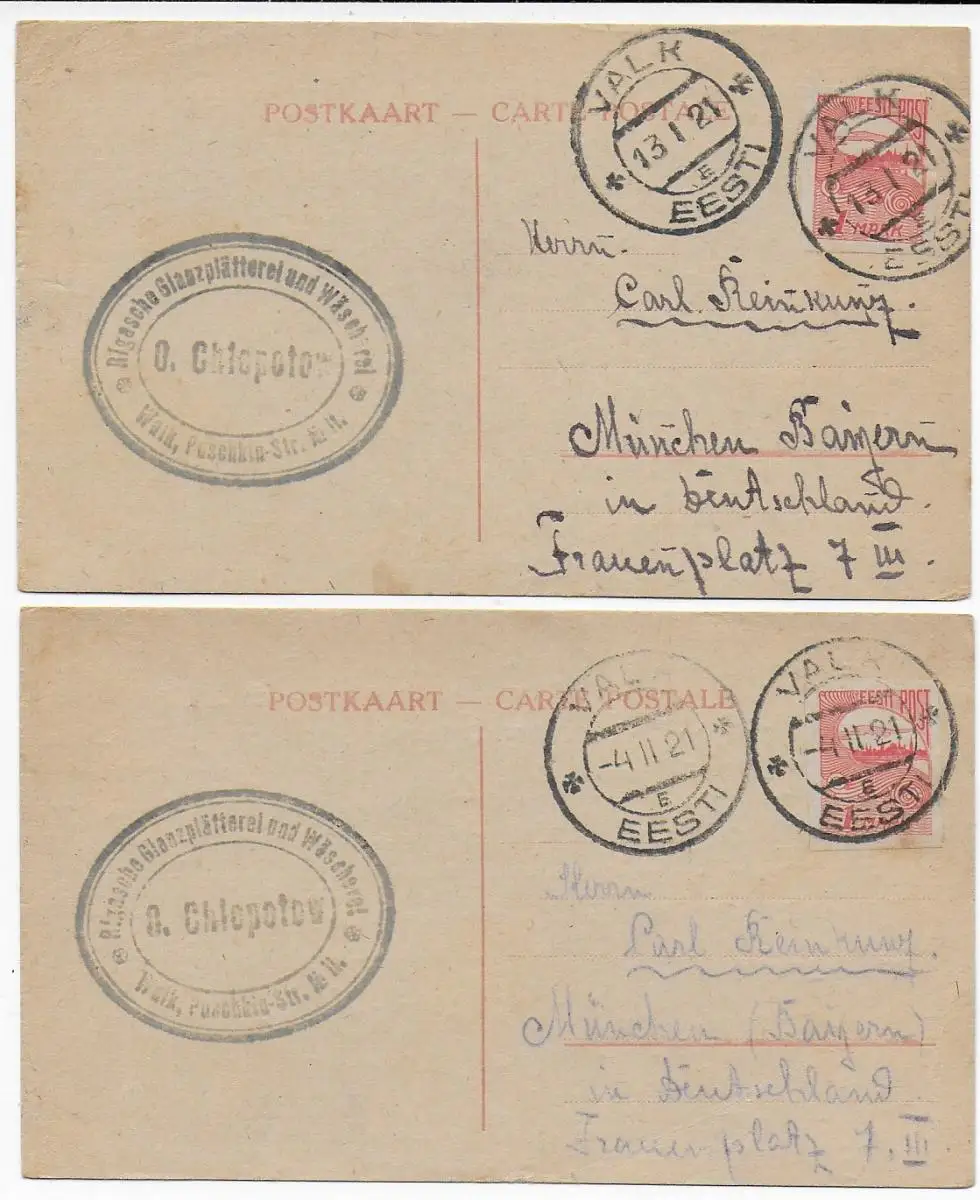 POSTKAART — CARTE POSTALE
VALK
13 I 21
E
EESTI
VALK
13 I 21
E
EESTI
EESTI POST
1 MARK
Rigasche Glanzplätterei und Wäscherei
O. Chlopotow
Walk, Puschkin-Str. № 11.
Herrn
Carl Reinkunz.
München Bayern
in Deutschland.
Frauenplatz 7 III.
POSTKAART — CARTE POSTALE
VALK
-4 II 21
E
EESTI
VALK
-4 II 21
E
EESTI
EESTI POST
Rigasche Glanzplätterei und Wäscherei
O. Chlopotow
Walk, Puschkin-Str. № 11.
Herrn
Carl Reinkunz.
München (Bayern)
in Deutschland.
Frauenplatz 7. III.